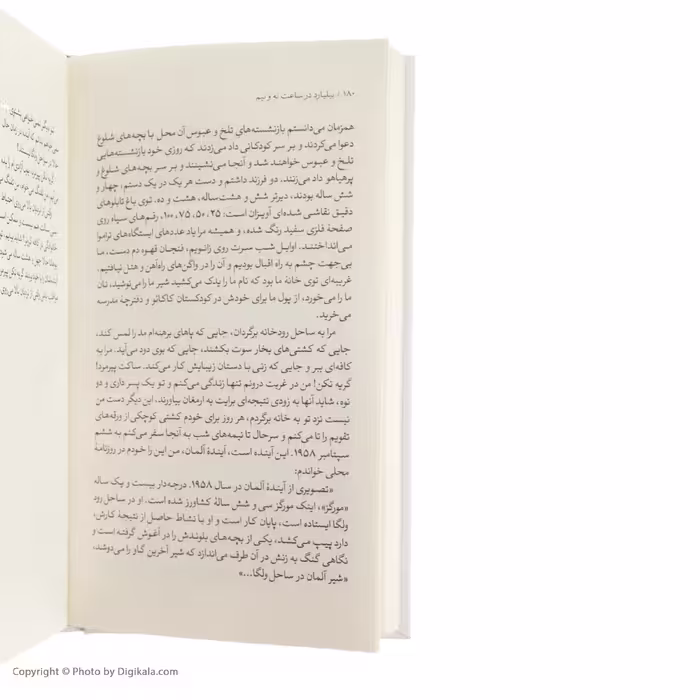 ۱۸۰ / بیلیارد در ساعت نه و نیم
همزمان می‌دانستم بازنشسته‌های تلخ و عبوس آن محل با بچه‌های شلوغ
دعوا می‌کردند و بر سر کودکانی داد می‌زدند که روزی خود بازنشسته‌هایی
تلخ و عبوس خواهند شد و آنجا می‌نشینند و بر سر بچه‌های شلوغ و
پرهیاهو داد می‌زنند، دو فرزند داشتم و دست هر یک در یک دستم، چهار و
شش ساله بودند، دیرتر شش و هشت ساله، هشت و ده. توی باغ تابلوهای
دقیق نقاشی شده‌ای آویزان است: ۲۵، ۵۰، ۷۵، ۱۰۰، رقم‌های سیاه روی
صفحهٔ فلزی سفید رنگ شده، و همیشه مرا یاد عددهای ایستگاه‌های تراموا
می‌انداختند. اوایل شب سرت روی زانویم، فنجان قهوه دم دست. ما
بی‌جهت چشم به راه اقبال بودیم و آن را در واگن‌های راه‌آهن و هتل نیافتیم.
غریبه‌ای توی خانهٔ ما بود که نام ما را یدک می‌کشید شیر ما را می‌نوشید، نان
ما را می‌خورد، از پول ما برای خودش در کودکستان کاکائو و دفترچهٔ مدرسه
می‌خرید.
مرا به ساحل رودخانه برگردان، جایی که پاهای برهنه‌ام مد را لمس کند،
جایی که کشتی‌های بخار سوت بکشند، جایی که بوی دود می‌آید. مرا به
کافه‌ای ببر و جایی که زنی با دستان زیبایش کار می‌کند. ساکت پیرمرد!
گریه نکن! من در غربت درونم تنها زندگی می‌کنم و تو یک پسر داری و دو
نوه، شاید آنها به زودی نتیجه‌ای برایت به ارمغان بیاورند، این دیگر دست من
نیست نزد تو به خانه برگردم، هر روز برای خودم کشتی کوچکی از ورقه‌های
تقویم را تا می‌کنم و سرحال تا نیمه‌های شب به آنجا سفر می‌کنم به ششم
سپتامبر ۱۹۵۸. این آینده است، آیندهٔ آلمان، من این را خودم در روزنامهٔ
محلی خواندم:
«تصویری از آیندهٔ آلمان در سال ۱۹۵۸. درجه‌دار بیست و یک ساله
«مورگز»، اینک مورگز سی و شش سالهٔ کشاورز شده است. او در ساحل رود
ولگا ایستاده است، پایان کار است و او با نشاط حاصل از نتیجهٔ کارش،
دارد پیپ می‌کشد، یکی از بچه‌های بلوندش را در آغوش گرفته است و
نگاهی گنگ به زنش در آن طرف می‌اندازد که شیر آخرین گاو را می‌دوشد.
«شیر آلمان در ساحل ولگا...»
Copyright © Photo by Digikala.com